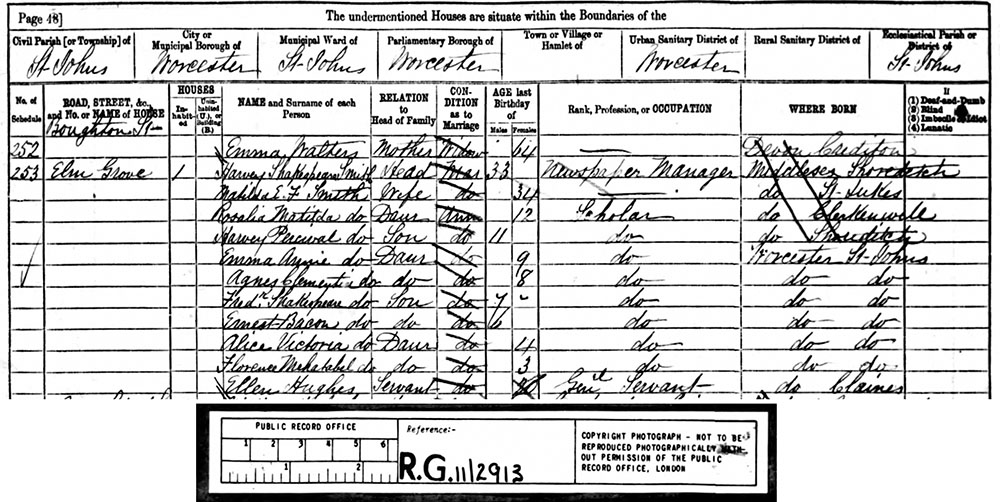 Page 48]
The undermentioned Houses are situate within the Boundaries of the
Civil Parish [or Township] of
City or Municipal Borough of
Municipal Ward of
Parliamentary Borough of
Town or Village or Hamlet of
Urban Sanitary District of
Rural Sanitary District of
Ecclesiastical Parish or District of
St Johns
Worcester
St Johns
Worcester
Worcester
St Johns
No. of Schedule
ROAD, STREET, &c., and No. or NAME of HOUSE
HOUSES
In-habit-ed
Unin-habited (U.), or Building (B.)
NAME and Surname of each Person
RELATION to Head of Family
CON-DITION as to Marriage
AGE last Birthday of
Males
Females
Rank, Profession, or OCCUPATION
WHERE BORN
If
(1) Deaf-and-Dumb
(2) Blind
(3) Imbecile or Idiot
(4) Lunatic
Boughton St
252 Emma Walters Mother Widow 64 — Devon Crediton
253 Elm Grove 1 Harvey Shakespeare Smith Head Mar 33 Newspaper Manager Middlesex Shoreditch
Matilda E. F. Smith Wife do 34 — do St Lukes
Rosalia Matilda do Daur Unm 12 Scholar do Clerkenwell
Harvey Percival do Son do 11 do do Shoreditch
Emma Annie do Daur do 9 do Worcester St Johns
Agnes Clementi do do do 8 do do do
Fredr. Shakespeare do Son do 7 do do do
Ernest Bacon do do do 6 do do do
Alice Victoria do Daur do 4 do do do
Florence Mehatabel do do do 3 do do do
Ellen Hughes Servant do Genl Servant do Claines
PUBLIC RECORD OFFICE
1 2 3 4 5 6
1 2
Reference:-
R.G. 11/2913
COPYRIGHT PHOTOGRAPH - NOT TO BE
REPRODUCED PHOTOGRAPHICALLY WITH-
OUT PERMISSION OF THE PUBLIC
RECORD OFFICE, LONDON